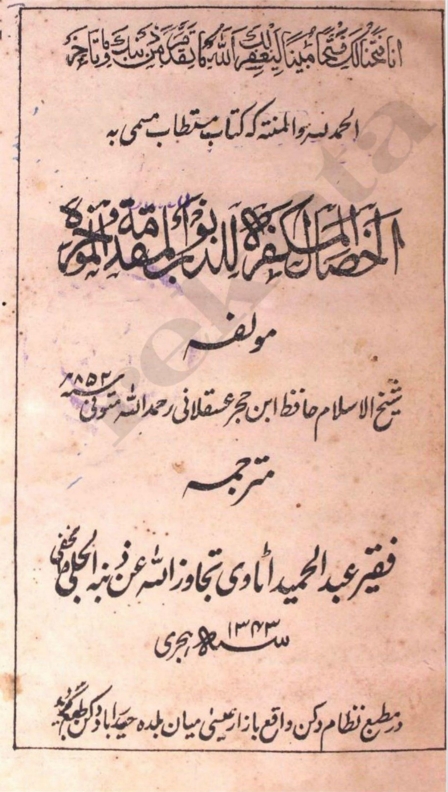 انا فتحنا لک فتحا مبینا لیغفر لک اللہ ما تقدم من ذنبک وما تاخر
الحمد للہ والمنتہ کہ کتاب مستطاب مسمی بہ
الخصال المکفرہ للذنوب المقدمة والموخرہ
مولفہ
شیخ الاسلام حافظ ابن حجر عسقلانی رحمہ اللہ متوفی سنہ ۸۵۲ھ
مترجمہ
فقیر عبد الحمید اٹاوی تجاوز اللہ عن ذنبہ الجلی والخفی
سنہ ۱۳۴۳ ہجری
در مطبع نظام دکن واقع بازار عیسیٰ میان بلدہ حیدرآباد دکن طبع گردید
rekhta